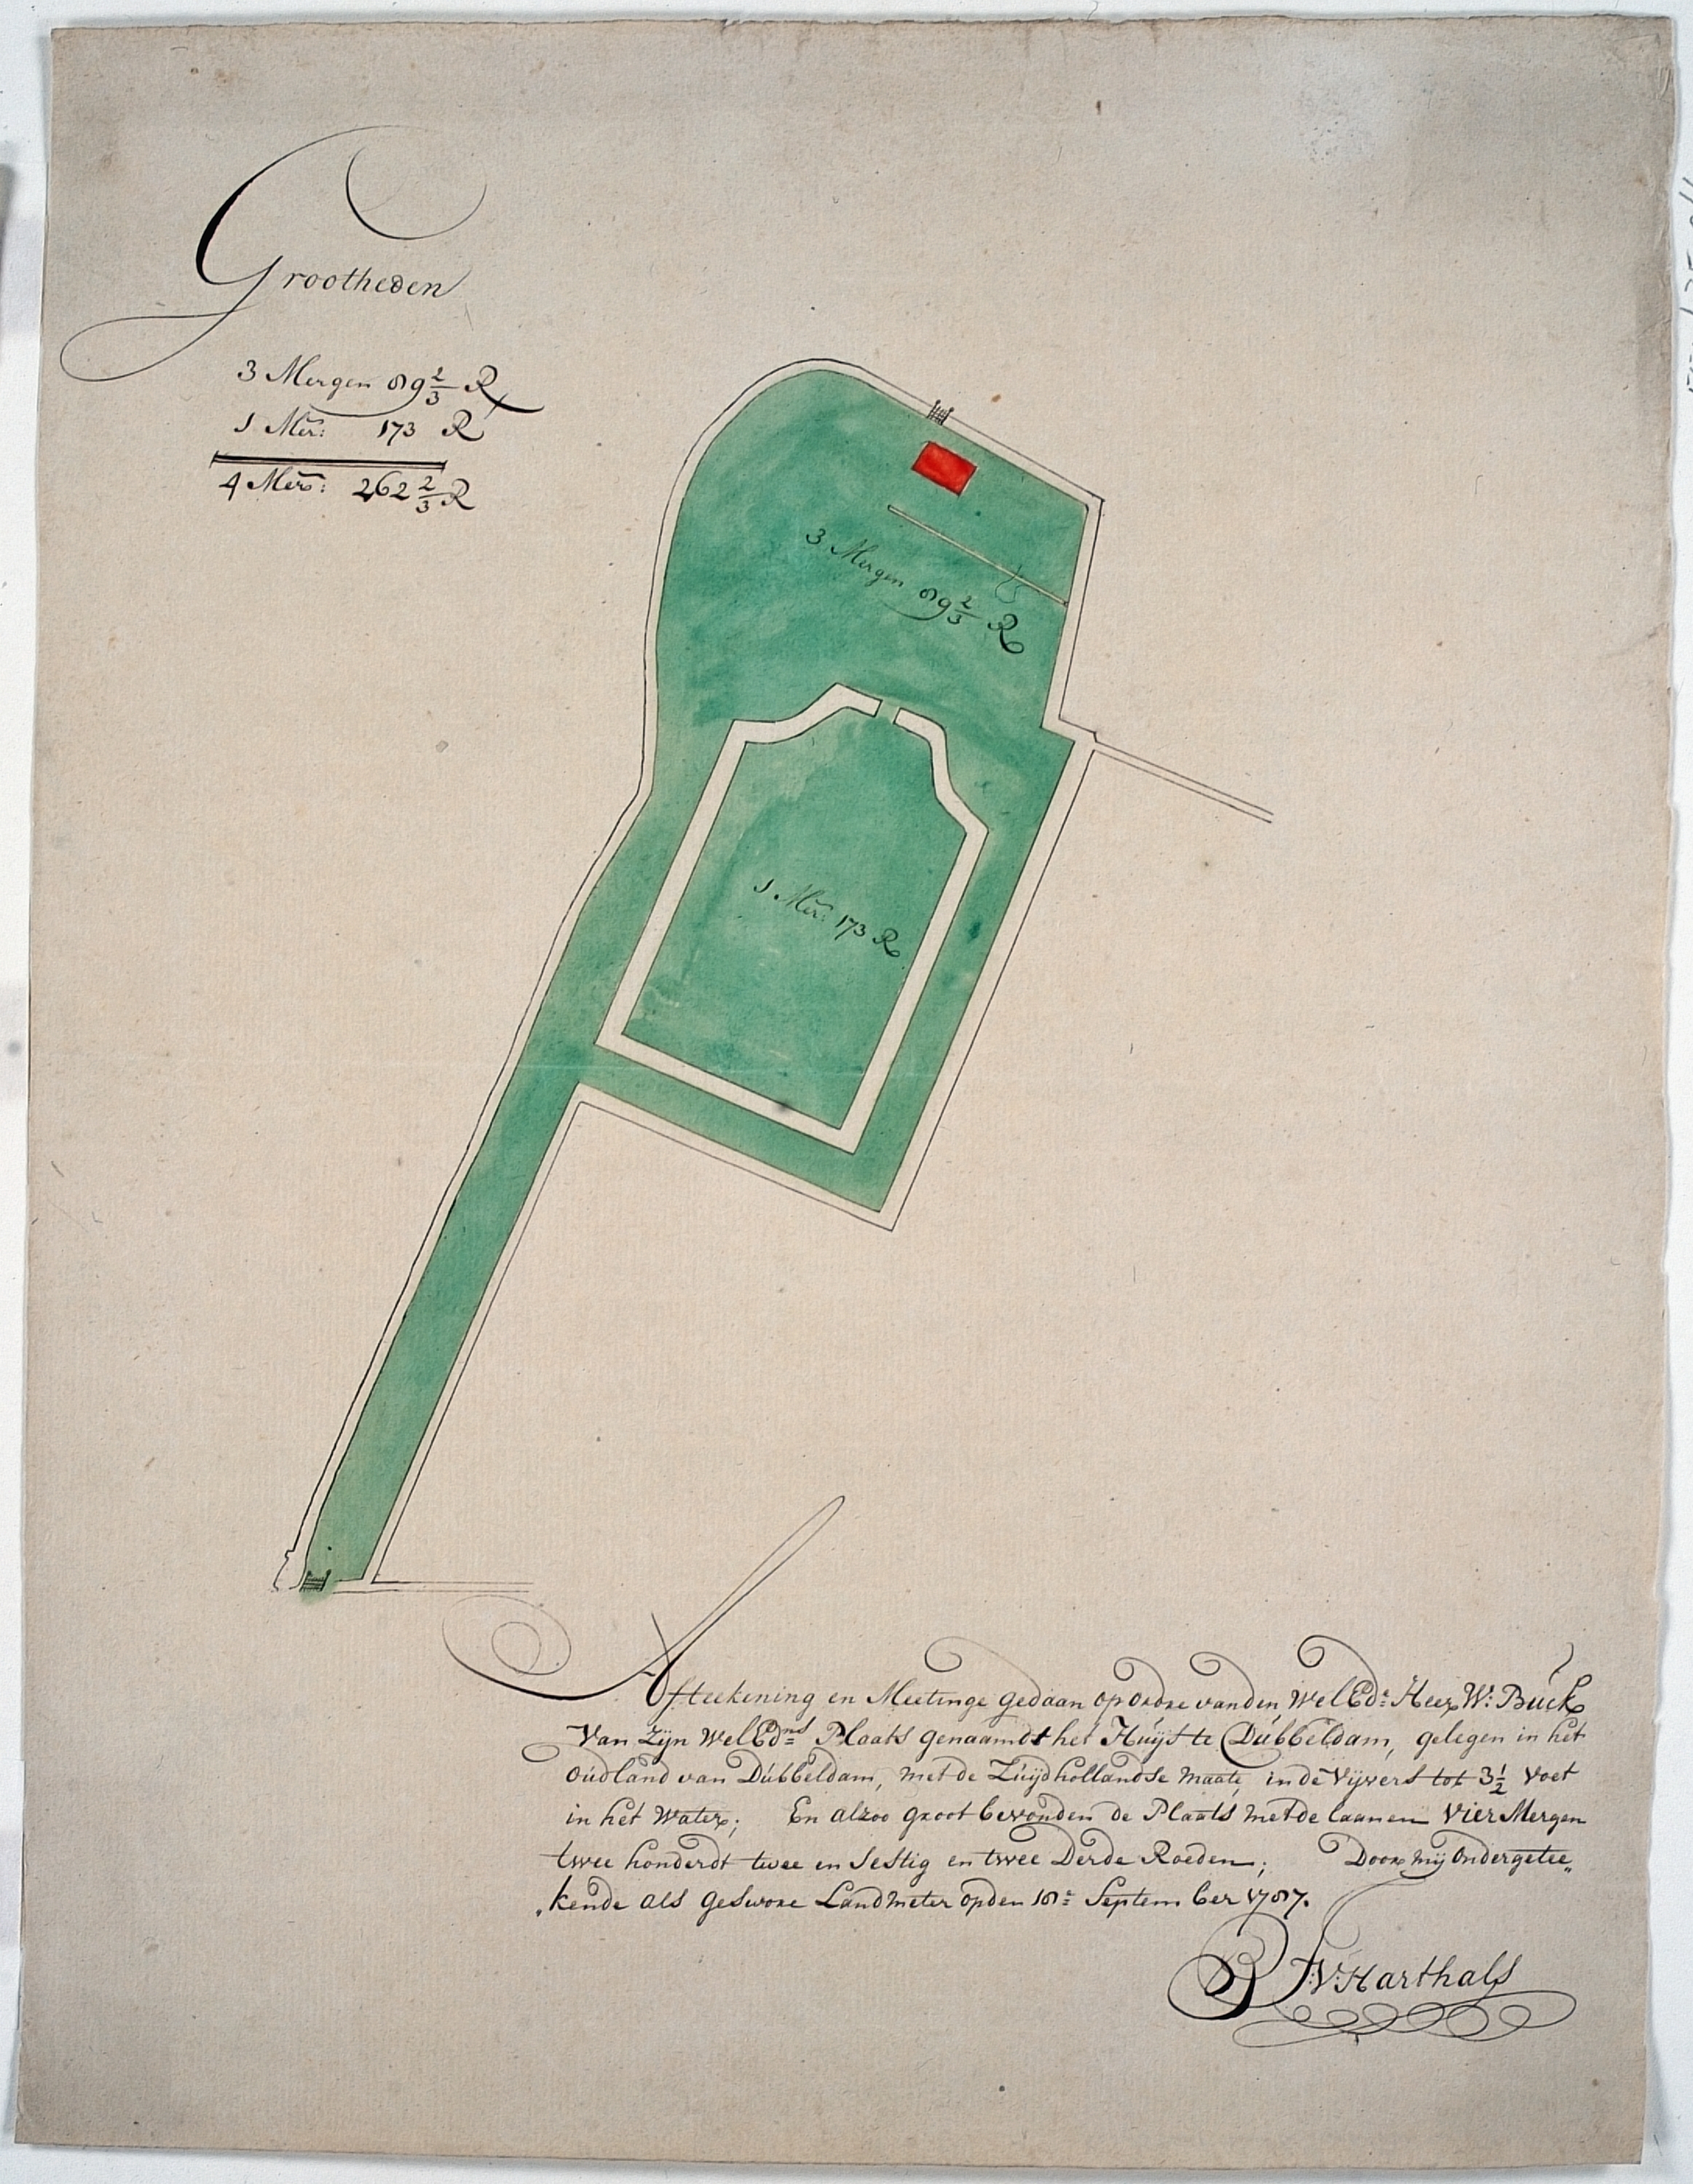 Grootheden
3 Mergen 89 2/3 R
1 Mer: 173 R
4 Mer: 262 2/3 R
3 Mergen 89 2/3 R
1 Mer: 173 R
Afteekening en Meetinge gedaan op ordre van den WelEd: Heer W: Buck
Van Zyn WelEdns Plaats genaamdt het Huys te Dubbeldam, gelegen in het
Oudland van Dubbeldam, met de Zuydhollandse maate, in de Vyvers tot 3 1/2 Voet
in het Water; En alzoo groot bevonden de Plaats met de laanen Vier Mergen
twee honderdt twee en Sestig en twee Derde Roeden; Door my Ondergetee„
„kende als geswore Landmeter op den 18e September 1787.
B FV: Harthals